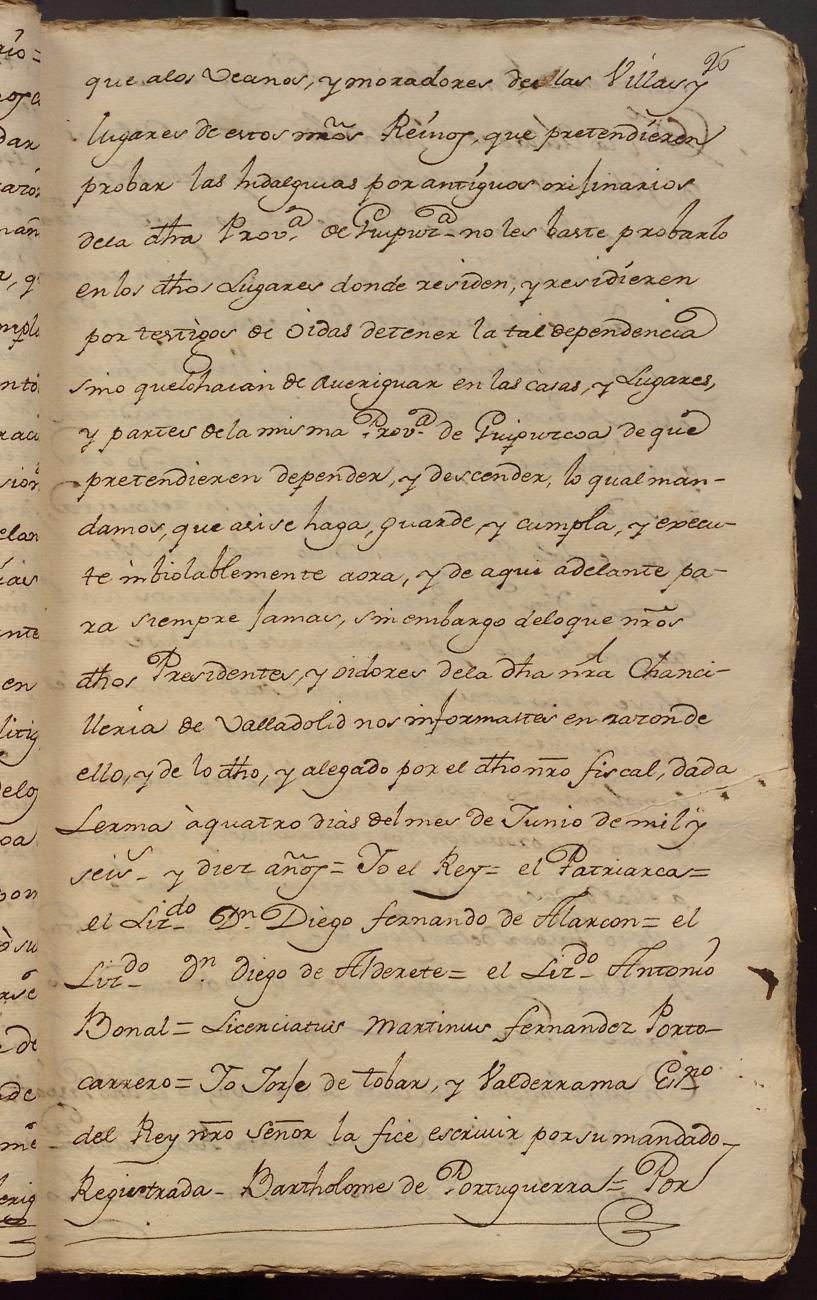 26
que a los Vecinos, y moradores de las Villas y
lugares de estos nrõs Reinos, que pretendieren
probar las hidalguias por antiguos orijinarios
dela dha Prov.ª de Guipuzª no les baste probarlo
en los dhos Lugares donde residen, y residieren
por testigos de oidas detener la tal dependencia
sino que lo haian de averiguar en las casas, y Lugares,
y partes de la misma Prov.ª de Guipuzcoa de que
pretendieren depender, y descender, lo qual man-
damos, que asi se haga, guarde, y cumpla, y execu-
te inbiolablemente aora, y de aqui adelante pa-
ra siempre jamas, sin embargo deloque nrõs
dhos Presidentes, y oidores dela dha nrã Chanci-
lleria de Valladolid nos informasteis en razon de
ello, y de lo dho, y alegado por el dho nrõ fiscal, dada
Lerma à quatro dias del mes de Junio de mil y
seisˢ- y diez años= Yo el Rey= el Patriarca=
el Lizdo Dn. Diego fernando de Alarcon= el
Lizdo dn. diego de Alderete= el Lizdo Antonio
Bonal= Licenciatus Martinus fernandez Porto-
carrero= Yo Jorje de tobar, y Valderrama Es.no
del Rey nrõ Señor la fice escrivir por su mandado-
Registrada- Bartholome de Portuguerra= Por